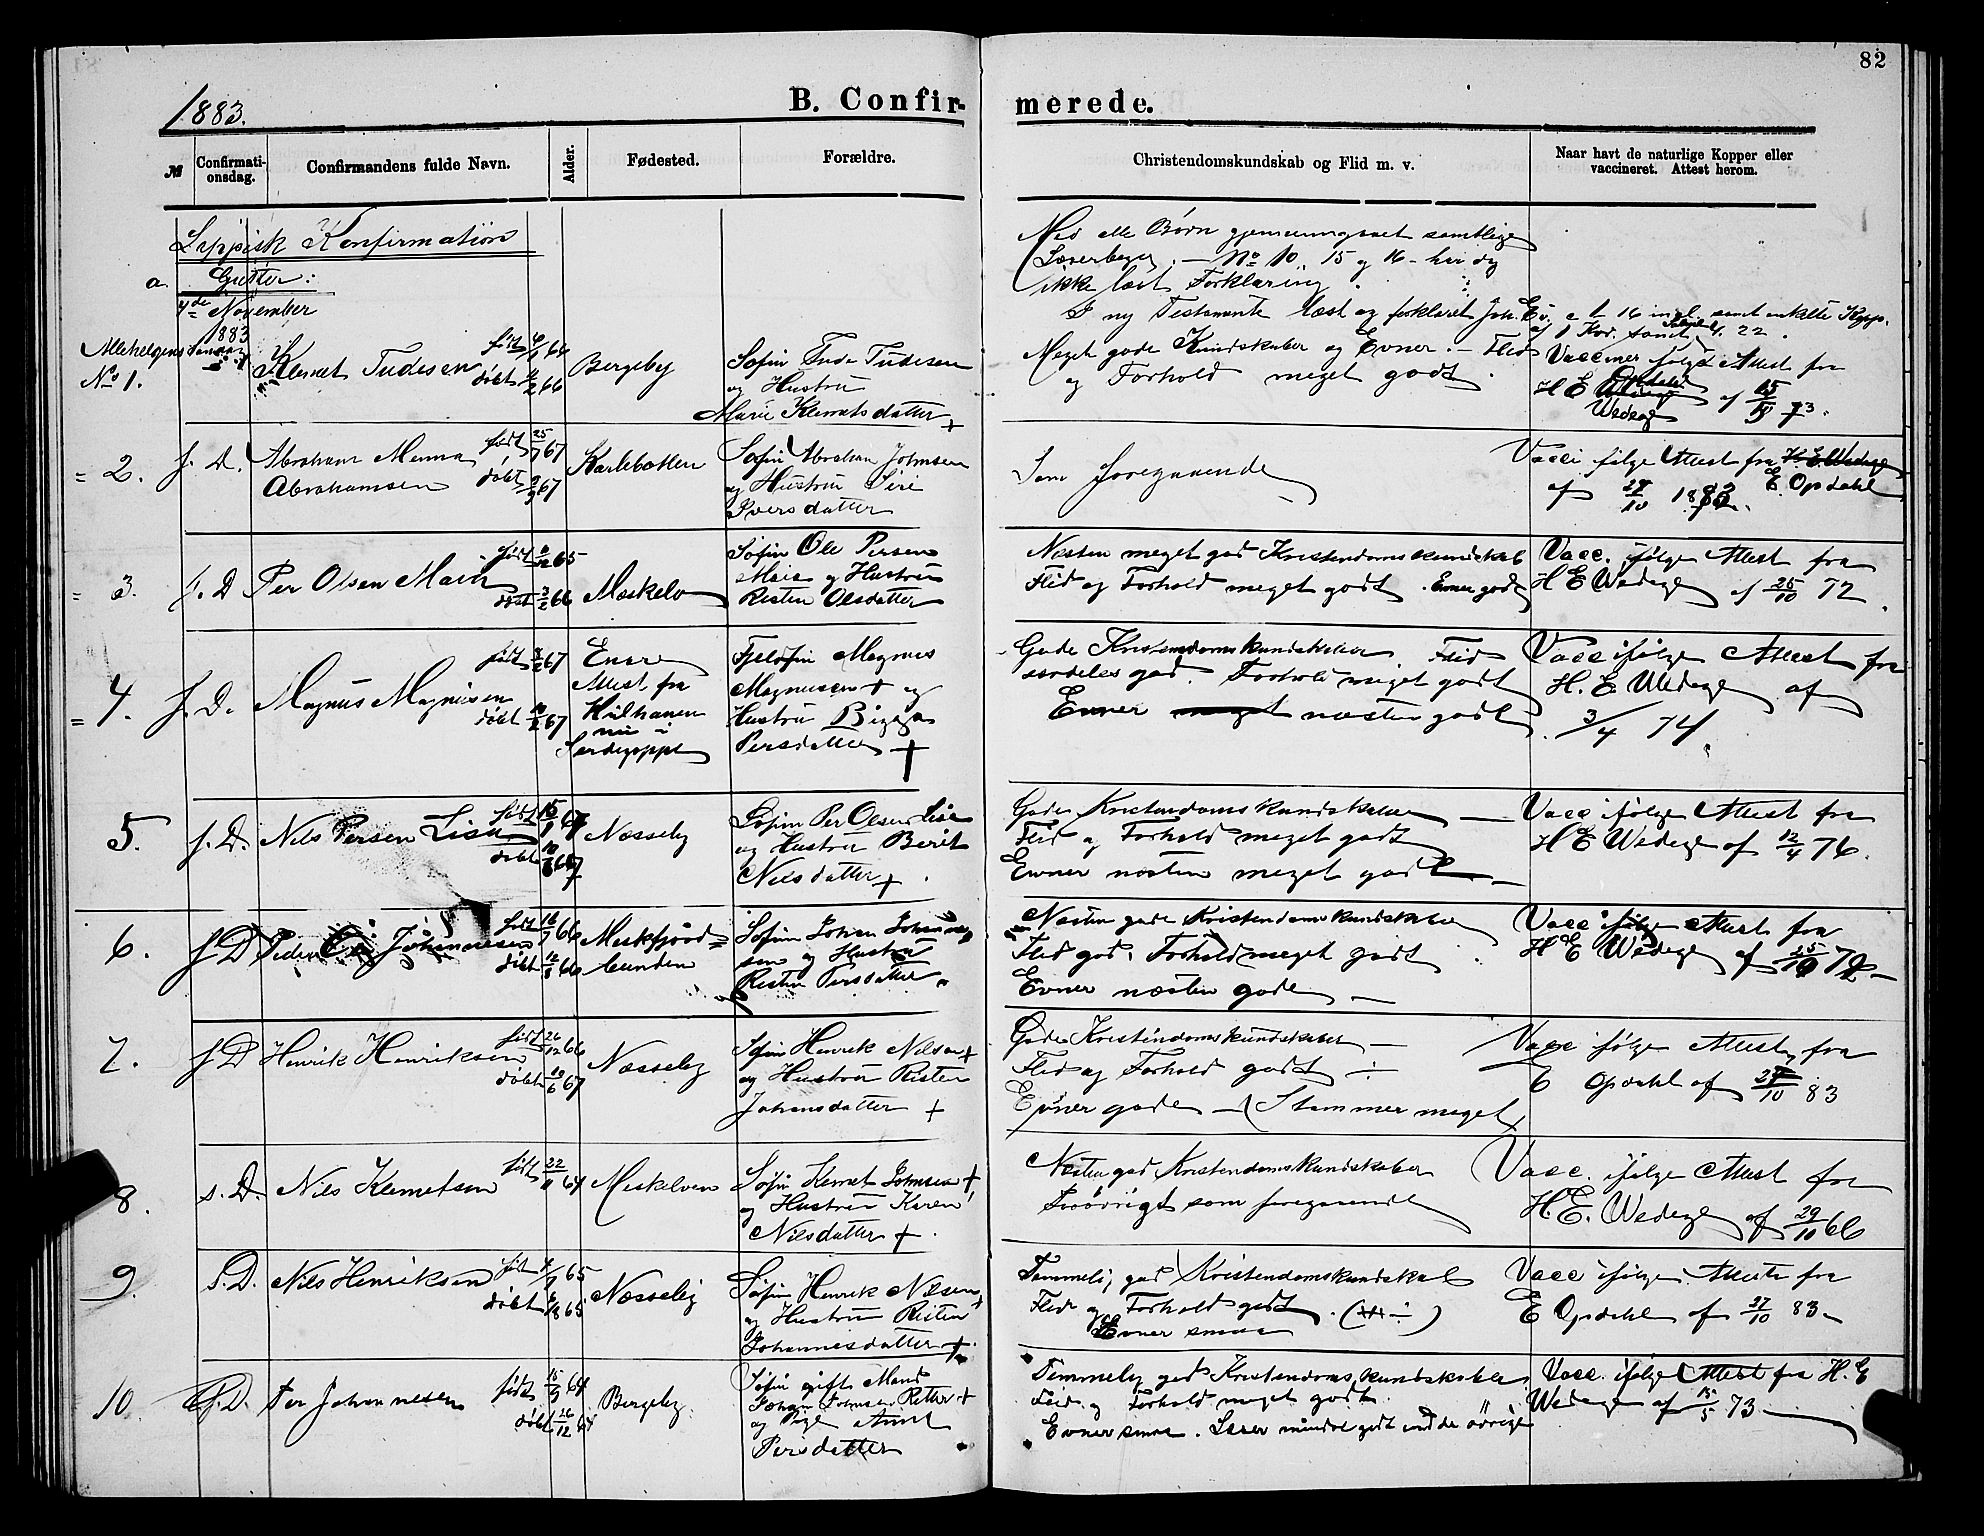 82
1883.
B. Confirmerede.
№
Confirmationsdag.
Confirmandens fulde Navn.
Alder.
Fødested.
Forældre.
Christendomskundskab og Flid m. v.
Naar havt de naturlige Kopper eller vaccineret. Attest herom.
Lappisk Konfirmation
a. Gutter:
4de November
1883
Med alle Børn gjennemgaaet samtlige
Lærebøger. — No 10, 15 og 16 har dog
ikke læst Forklaring.
I ny Testamente læst og forklaret Joh. Ev.
Allehelgens Søndag
No 1.
Klemet Tudesen
født 66
døbt 66
Bergeby
Søfin Tude Tudesen
og Hustru
Marie Klemetsdatter +
Meget gode Kundskaber og Evner. — Flid
og Forhold meget godt.
Vacciner ifølge Attest fra
H E Wedege af 73.
= 2.
s. D.
Abraham Menna
Abrahamsen
født 25/7 67
døbt 67
Karlebotten
Søfin Abraham Johnsen
og Hustru Siri
Iversdatter
Som foregaaende
Vacci ifølge Attest fra H. E. Wedege
E. Opdahl
af 27/10 1883.
= 3.
s. D
Per Olsen Main
født 65
døbt 66
Meskelv
Søfin Ole Persen
Main og Hustru
Risten Olsdatter
Næsten meget god Kristendomskundskab
Flid og Forhold meget godt. Evner gode
Vacc. ifølge Attest fra
H E Wedege af 25/10 72.
= 4.
s. D.
Magnus Magnusen
født 67
døbt 67
Enare
Attest fra
nu i
Søfin Magnus
Magnusen + og
Hustru Birgga
Persdatter +
Gode Kristendomskundskaber. Flid
særdeles god. Forhold meget godt
Evner meget næsten godt
Vacc ifølge Attest fra
H. E. Wedege af
3/4 74.
5.
s. D.
Nils Persen Lisa
født 15/1 67
døbt 67
Næsseby
Søfin Per Olsen Lisa
og Hustru Berit
Nilsdatter +.
Gode Kristendomskundskaber —
Flid og Forhold meget godt
Evner næsten meget godt —
Vacc ifølge Attest fra
H E Wedege af 12/4 76.
6.
s D
Peder Johannesen
født 16/7 66
døbt 12/8 66
Meskfjord=
bunden
Søfin Johan Johannes
sen og Hustru
Risten Persdatter.
Næsten gode Kristendomskundskaber
Flid god. Forhold meget godt.
Evner næsten gode —
Vacc ifølge Attest fra
H E Wedege af 25/10 72 —
7.
s D
Henrik Henriksen
født 26/12 66
døbt 10/6 67
Næsseby
Søfin Henrik Nilsen +
og Hustru Risten
Johansdatter +
Gode Kristendomskundskaber —
Flid og Forhold godt ÷
Evner gode — (Stammer meget)
Vacc ifølge Attest fra
E Opdahl af 27/10 83
8.
s. D.
Nils Klemetsen
født 22/11 64
Meskelven
Søfin Klemet Johnsen +
og Hustru Karen
Nilsdatter +.
Næsten god Kristendomskundskaber
Forøvrigt som foregaaende
Vacc. ifølge Attest fra
H. E. Wedege af 29/10 66
9.
s. D.
Nils Henriksen
født 65
døbt 65
Næsseby
Søfin Henrik Nilsen +
og Hustru Risten
Johannesdatter +.
Temmelig god Kristendomskundskab
Flid og Forhold godt.
Evner smaa
Vacc ifølge Attest fra
E Opdahl af 27/10 83 —
10.
s. D.
Per Johannesen
født 15/9 64
døbt 26/12 64
Bergeby
Søfin gift Mand
Johan Johnsen Ritter +
og Pige Anne
Persdatter
Temmelig god Kristendomskundskaber
Flid og Forhold meget godt.
Evner smaa. Læser mindre godt end de øvrige
Vacc. ifølge Attest fra H. E
Wedege af 15/5 73 —